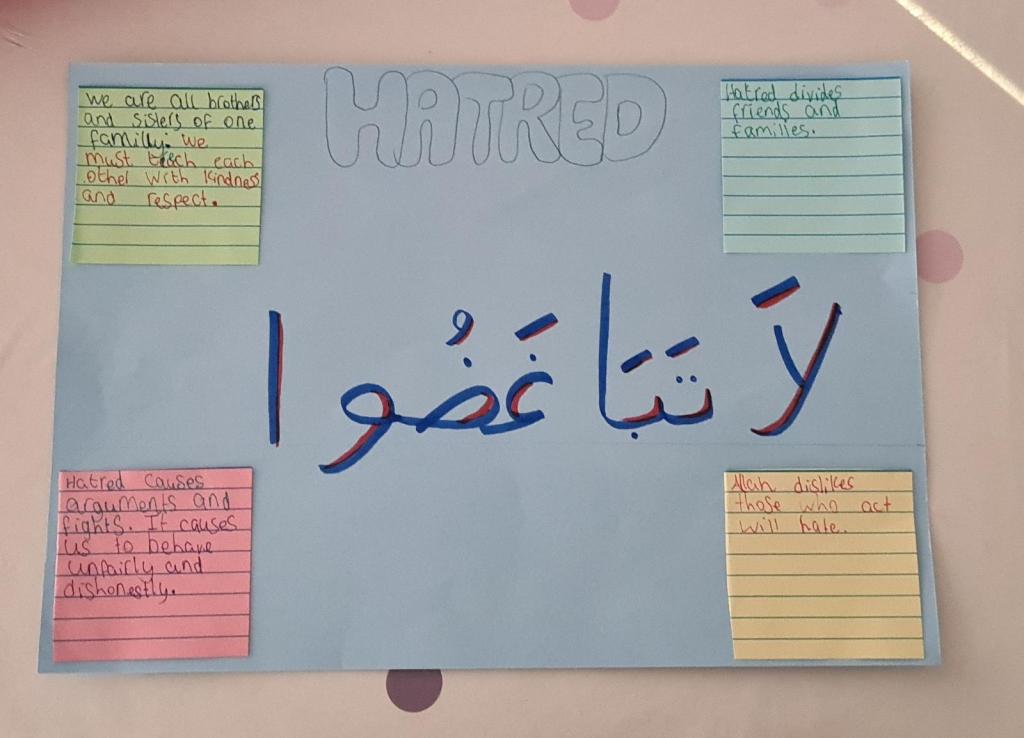 HATRED
We are all brothers
and sisters of one
familly. We
must teach each
other with kindness
and respect.
Hatred divides
friends and
families.
لَا تَبَاغَضُوا
Hatred causes
arguments and
fights. It causes
us to behave
unfairly and
dishonestly.
Allah dislikes
those who act
will hate.